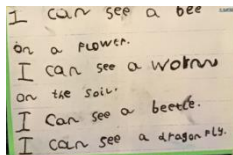 I can see a bee
on a flower.
I can see a worm
on the soil.
I can see a beetle.
I can see a dragon fly.